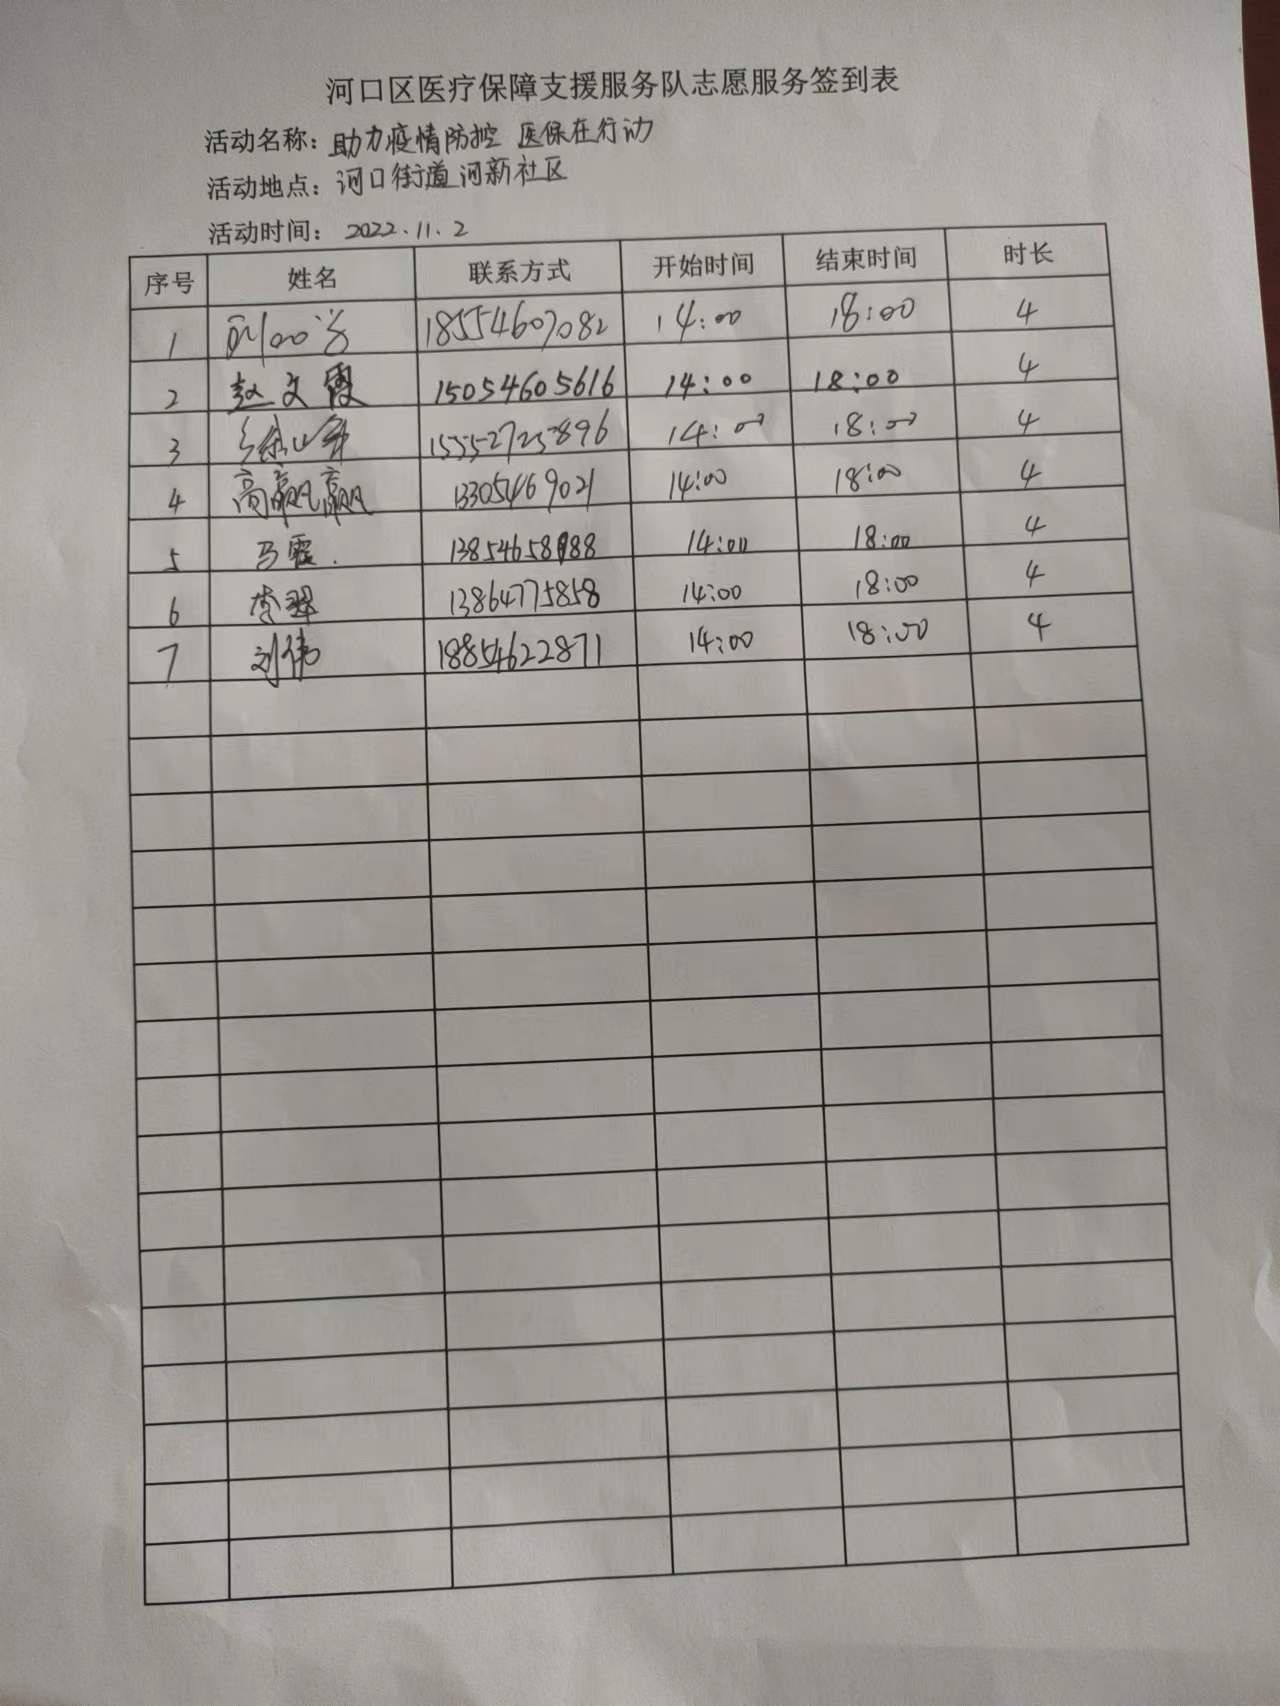 河口区医疗保障支援服务队志愿服务签到表
活动名称：助力疫情防控 医保在行动
活动地点：河口街道河新社区
活动时间：2022.11.2
序号 姓名 联系方式 开始时间 结束时间 时长
1 18554607082 14:00 18:00 4
2 赵文霞 15054605616 14:00 18:00 4
3 15552725896 14:00 18:00 4
4 高飙飙 13305469021 14:00 18:00 4
5 马霞 13854658188 14:00 18:00 4
6 13864775858 14:00 18:00 4
7 刘伟 18854622871 14:00 18:00 4